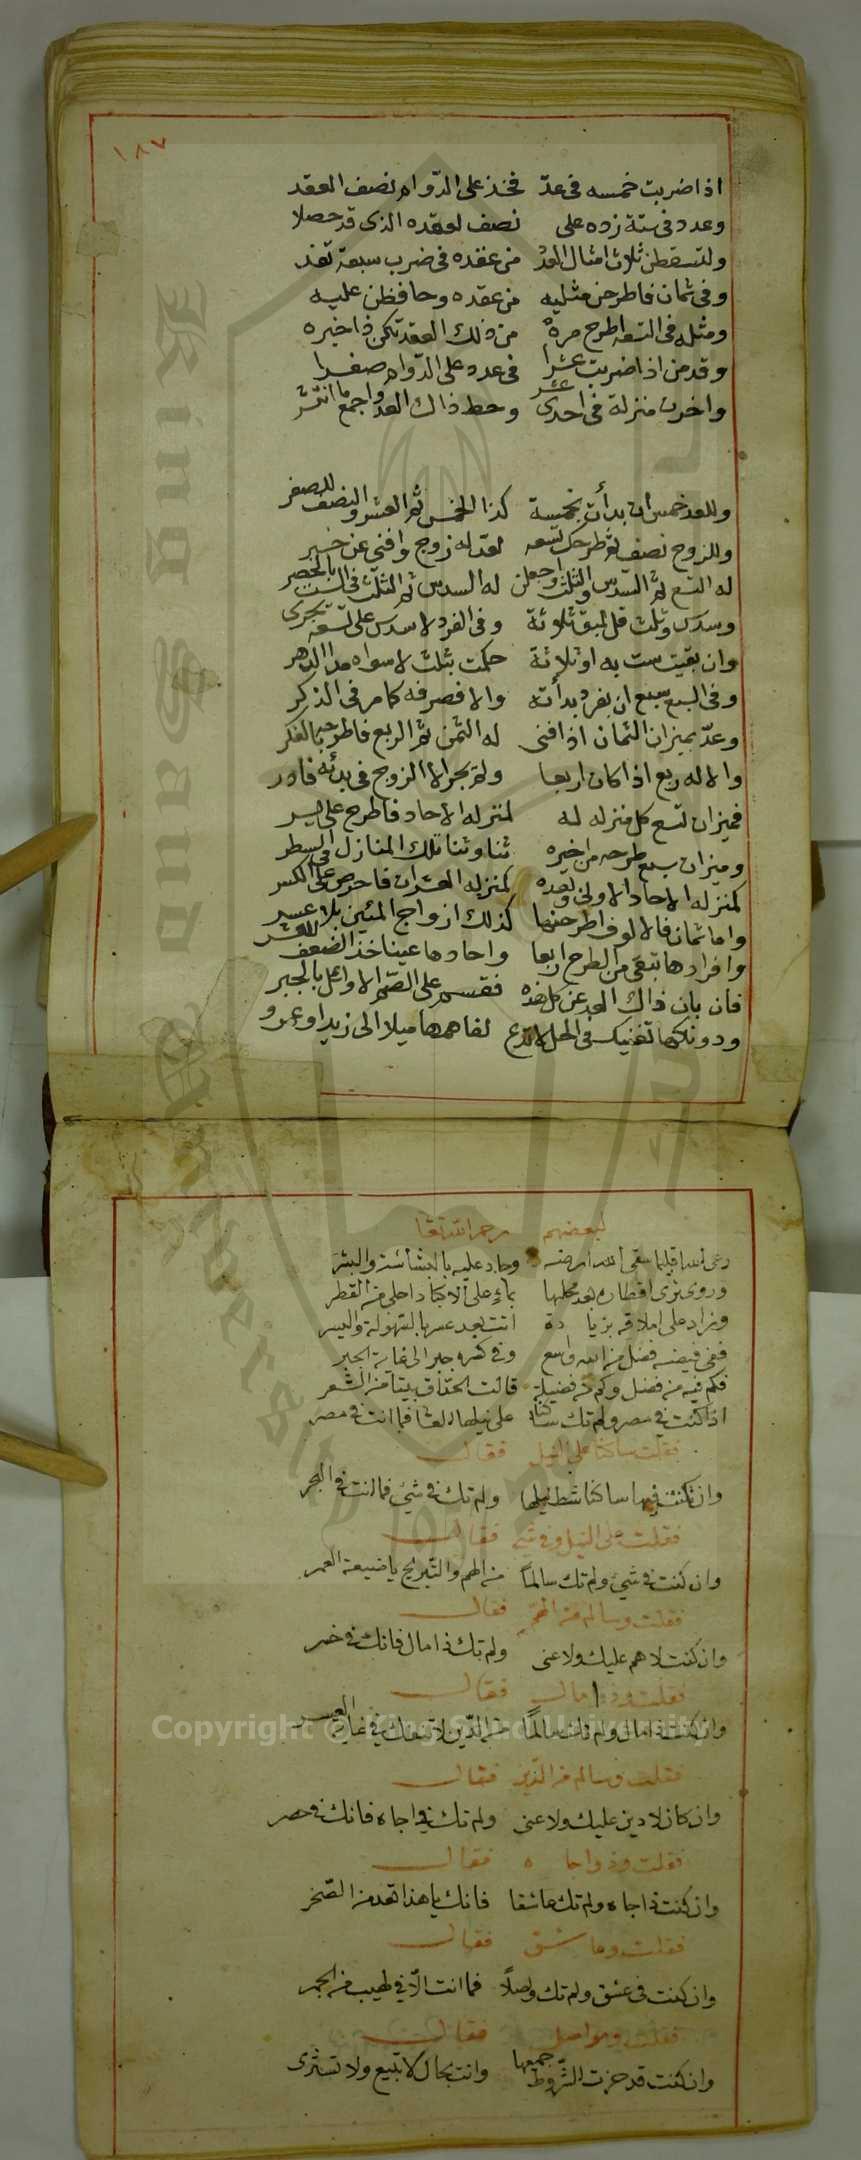 ١٨٧
اذا ضربت خمسه فى عدّ فخذ على الدّوام نصف العقد
وعدد فى ستة زده على نصف لعقده الذى قد حصلا
ولتسقطن ثلاث امثال العدد من عقده فى ضرب سبعة تفد
وفى ثمان فاطرحن مثليه من عقده وحافظن عليه
ومثله فى التسعه اطرح مرة من ذلك العقد تكن ذا خيره
وقدمن اذا ضربت عشرا فى عدد على الدّوام صفرا
واخرن منزلة فى احدى عشر وحط ذاك العد واجمع ما انتثر
وللعد خمس ان بدأت بخمسة كذا الخمس ثم العشر والنصف للصفر
وللزوج نصف ثم طرحك تسعه لعد له زوج وافنى عن خبر
له التسع ثم السدس والثلث واجعلن له السدس ثم الثلث فى الست بالحصر
وسدس وثلث قل لبق ثلاثة وفى الفرد لا سدس على تسعه تجرى
وان بقيت ست به او ثلاثة حكمت بثلث لا سواه مدا الدهر
وفى السبع سبع ان بفرد بدأته والا فصرفه كما مر فى الذكر
وعدّ بميزان الثمان اذا فنى له الثمن ثم الربع فاطرحه بالفكر
والا له ربع اذا كان اربعا ولم يجر الا الزوج فى بدئه فادر
فميزان تسع كل منزله له لمنزله الاحاد فاطرح على
وميزان سبع طرحه من اخيره ثنا وثنا تلك المنازل فى السطر
كمنزله الاحاد الاولى وبعده كمنزله العشران فاحرص على الكسر
واما ثمان فالالوف اطرحنها كذلك ازواج المئين بلا عسر
وافرادها تبقى من الطرح اربعا واحادها عينا خذ الضعف للعشر
فان بان ذاك العد عن كل هذه فقسم على الصم الاوائل بالجبر
ودونكها تغنيك فى الحل لا تدع لفاهمها ميلا الى زيد او عمرو
لبعضهم رحمه الله تعا
رعى الله اقليما سقى الله ارضه وجاد عليه بالبشاشة والبشر
وروى ثرى اقطاره بعد محلها بماء على الاكباد احلى من القطر
وزاد على املاقه بزيادة اتت بعد عسر بالسهولة واليسر
ففى فيضه فضل من الله واسع وفى كسره جبر الى غاية الجبر
فكم فيه من فضل وكم من فضيلة قالت الحذّاق بيتا من الشعر
اذا كنت فى مصر ولم تك ساكنا على نيلها الها فما انت فى مصر
فقلت ساكنا على النيل فقال
وان كنت فيها ساكنا شط نيلها ولم تك فى شئ فما انت فى البحر
فقلت على النيل وفى شئ فقال
وان كنت فى شئ ولم تك سالما من الهم والتبريح يا ضيعة العمر
فقلت وسالم من الهم فقال
وان كنت لا هم عليك ولا عنى ولم تك ذا مال فانك فى خسر
فقلت وذو مال فقال
وان كنت ذا مال ولم تك سالما من الدّين لا تنفك فى غاية العسر
فقلت وسالم من الدّين فقال
وان كان لا دين عليك ولا عنى ولم تك ذا جاه فانك فى حصر
فقلت وذو جاه فقال
وان كنت ذا جاه ولم تك عاشقا فانك يا هذا تعد من الصّخر
فقلت وعاشق فقال
وان كنت فى عشق ولم تك واصلا فما انت الّا فى لهيب من الجمر
فقلت ومواصل فقال
وان كنت قد حزت الشروط جميعها وانت بحال لا تبيع ولا تشترى
King Saud University
Copyright © King Saud University